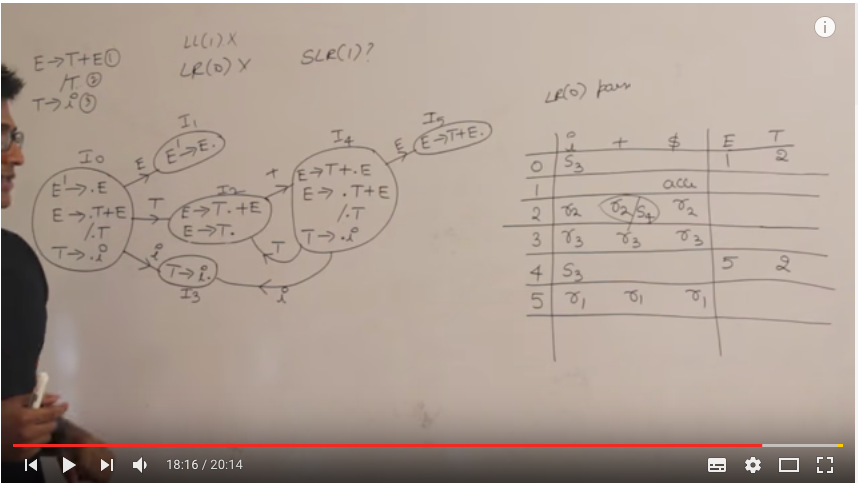 E→T+E ①
/T ②
T→i ③
LL(1) X
LR(0) X
SLR(1)?
I0
E'→.E
E→.T+E
/.T
T→.i
E
I1
E'→E.
T
I2
E→T.+E
E→T.
i
T→i.
I3
+
I4
E→T+.E
E→.T+E
/.T
T→.i
T
i
E
I5
E→T+E.
LR(0)
i + $ E T
0 S3 1 2
1 acc
2 r2 r2/S4 r2
3 r3 r3 r3
4 S3 5 2
5 r1 r1 r1
18:16 / 20:14
i